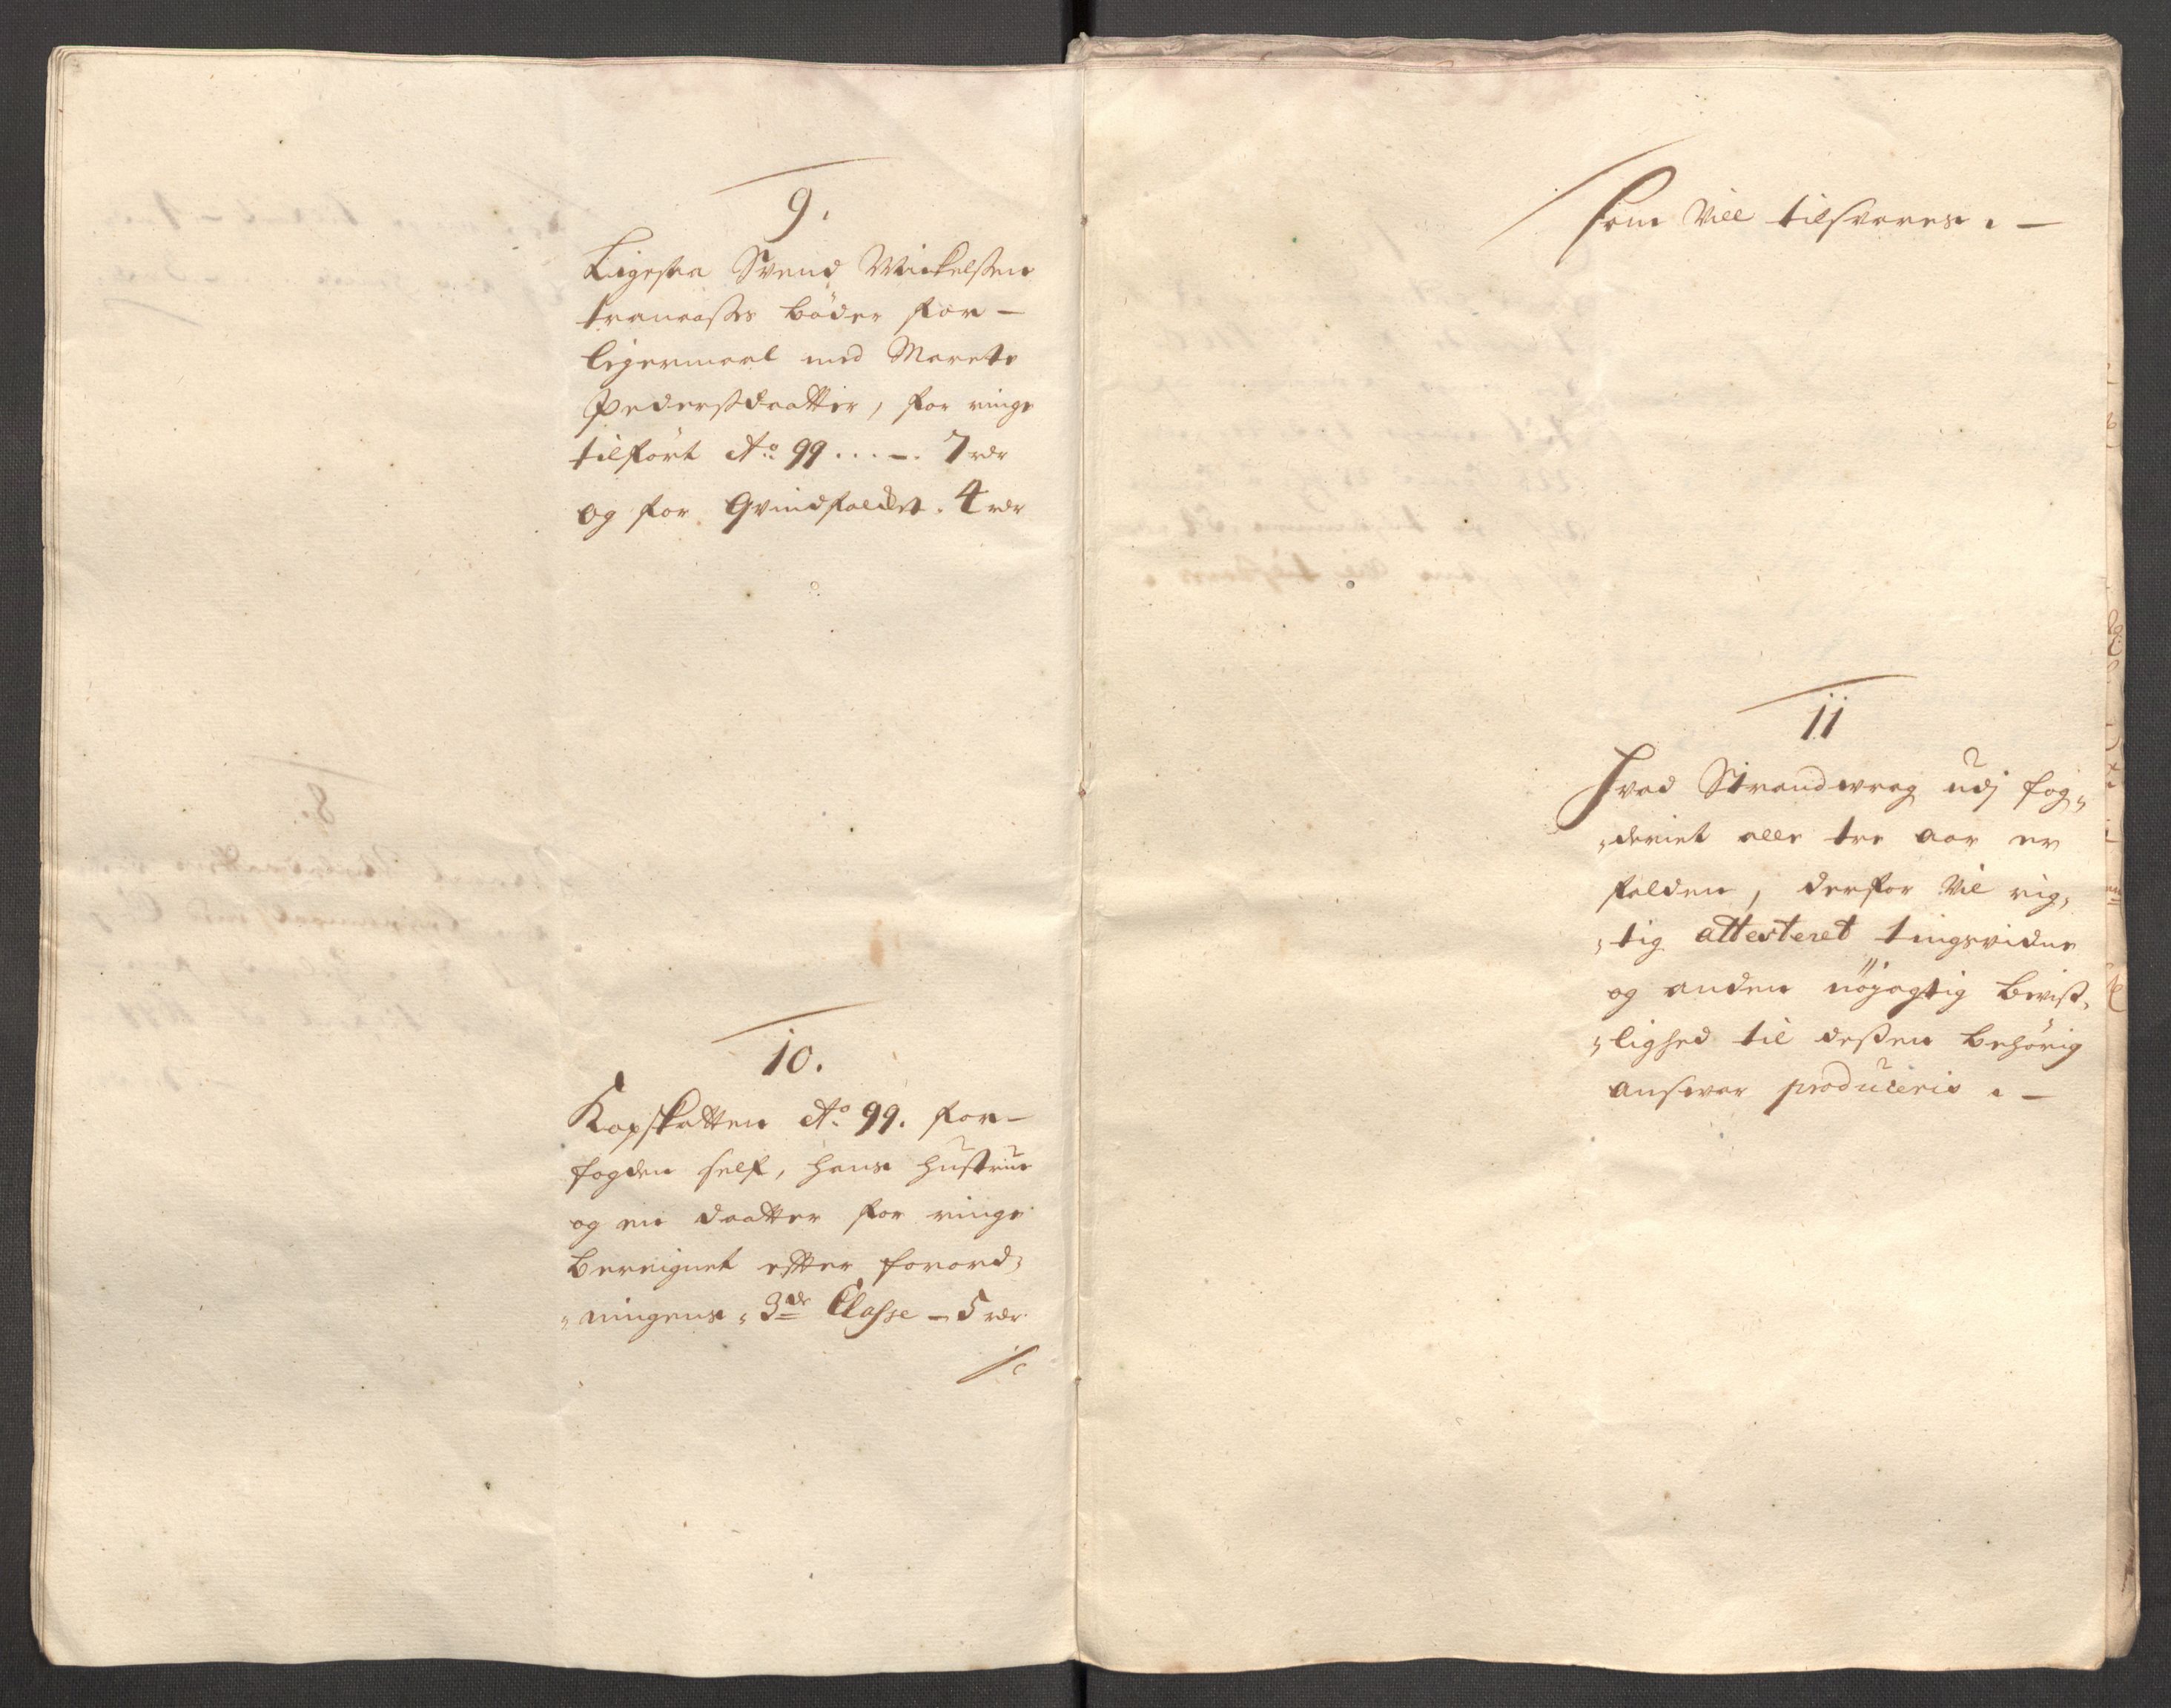 9.
Ligesaa Svend Mickelsen
tranaasses böder for –
leyermaal med Marete
Pedersdaatter, for ringe
tilfört Ao. 99 . . . – . 7 rdr
og for qvindfolcket . 4 rdr
10.
Kopskatten Ao. 99. for –
fogden self, hans hustrue
og en daatter for ringe
beregnet efter forord„
„ningens „ 3de Classe – 5 rdr
Som vill tilsvares . –
11
Hvad Strandwrag udj fog„
„deriet alle tre aar er
falden, derfor vil rig„
„tig attesteret tingsvidne
og anden nöyagtig beviß„
„lighed til deßen behörig
answar produceris . –